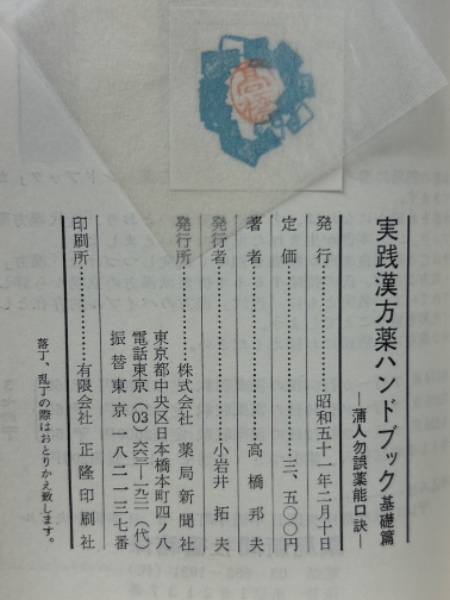 髙橋
実践漢方薬ハンドブック基礎篇
―蒲人勿誤薬能口訣―
発行…………昭和五十一年二月十日
定価…………三、五〇〇円
著者…………高橋邦夫
発行者…………小岩井拓夫
発行所…………株式会社 薬局新聞社
東京都中央区日本橋本町四ノ八
電話東京(03)六六三―一九二一(代)
振替東京一八二一三七番
印刷所…………有限会社 正隆印刷社
落丁、乱丁の際はおとりかえ致します。